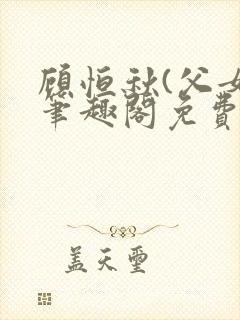 顾恒秋(父女
笔趣阁免费
盖天玺